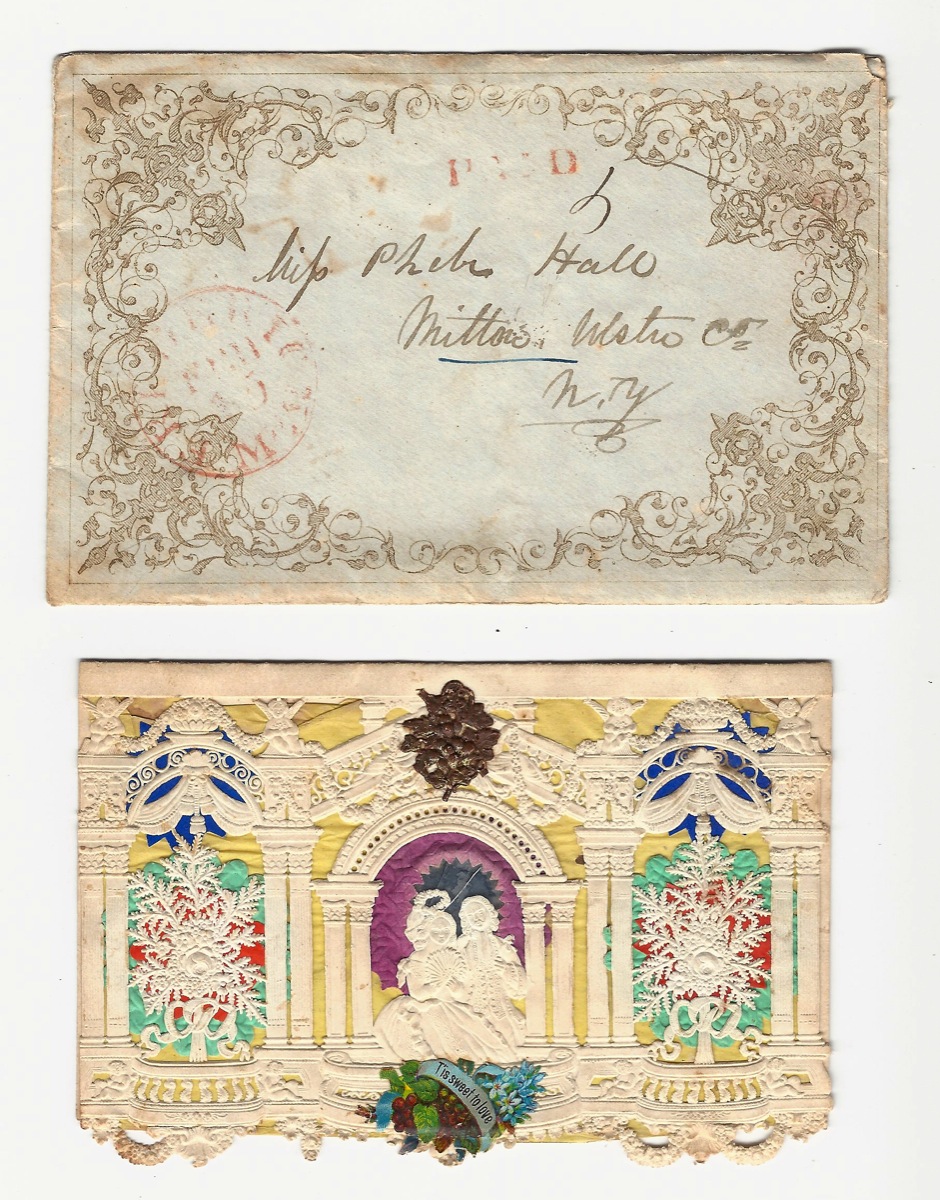 PAID
5
Miss Phebe Hall
Milton Ulster Co
N.Y
T'is sweet to love